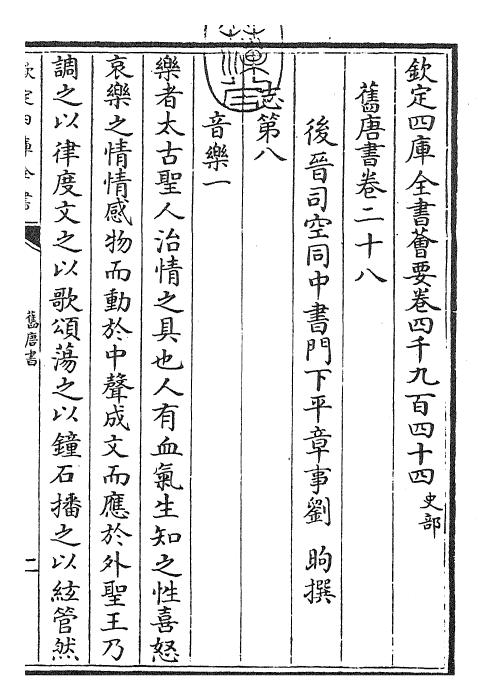 欽定四庫全書薈要卷四千九百四十四史部
舊唐書卷二十八
後晉司空同中書門下平章事劉昫撰
志第八
音樂一
樂者太古聖人治情之具也人有血氣生知之性喜怒
哀樂之情情感物而動於中聲成文而應於外聖王乃
調之以律度文之以歌頌蕩之以鐘石播之以絃管然
欽定四庫全書
舊唐書